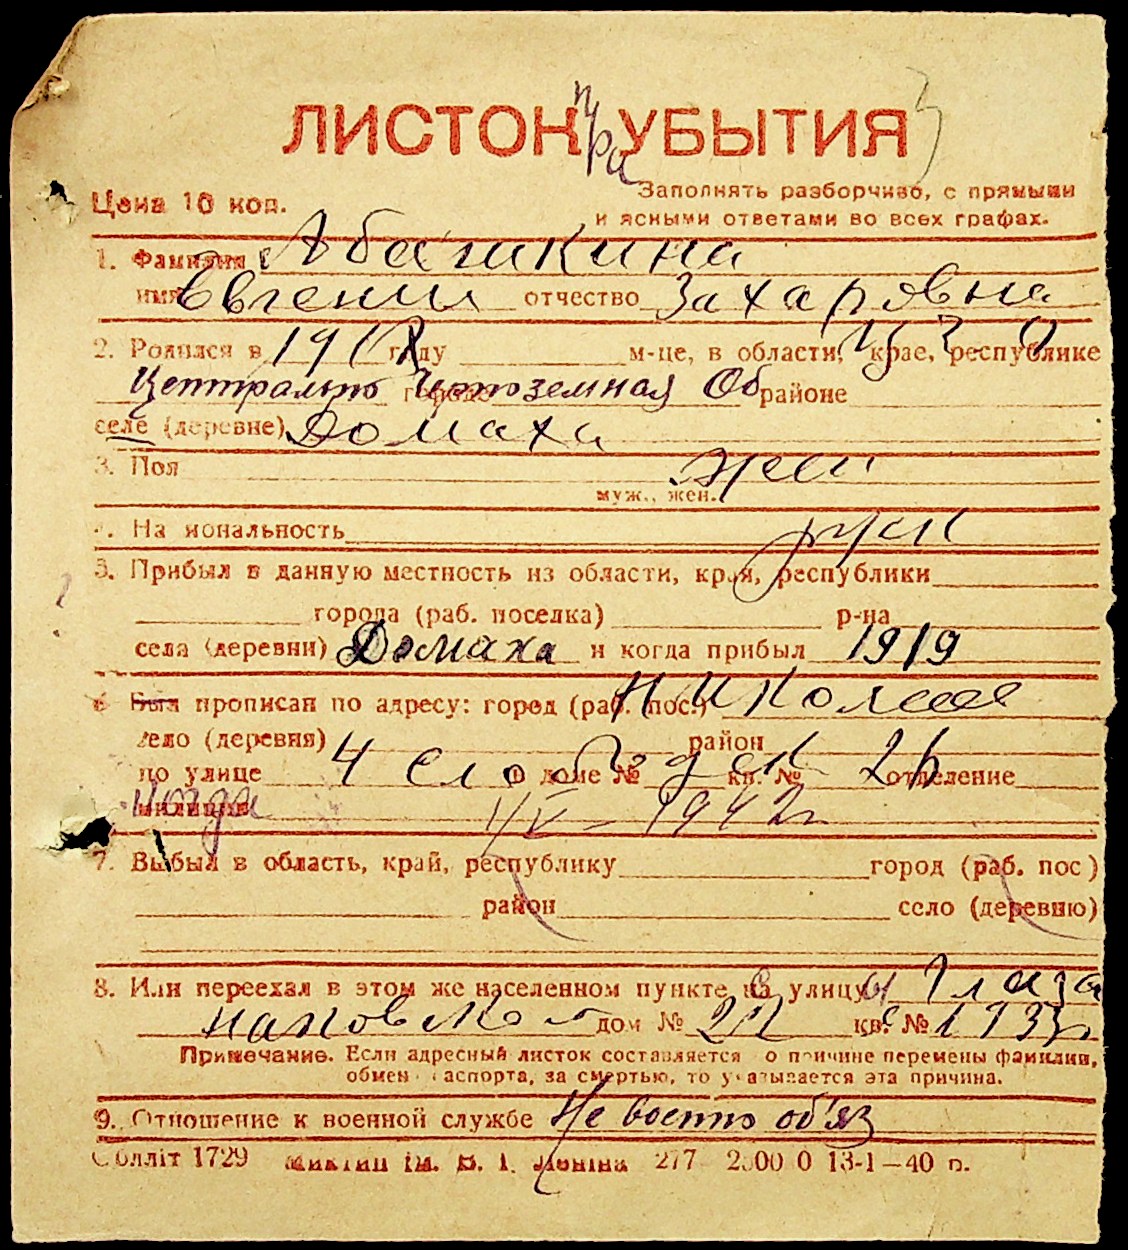 ЛИСТОК УБЫТИЯ
Цена 10 коп.
Заполнять разборчиво, с прямыми
и ясными ответами во всех графах.
1. Фамилия Абашкина
имя Евгения отчество Захаровна
2. Родился в 191 году м-це, в области, крае, республике
Центрально городе Черноземная Об районе
селе (деревне) Домаха
3. Пол жен
муж., жен.
На иональность русск
5. Прибыл в данную местность из области, края, республики
города (раб. поселка) р-на
села (деревни) Домаха и когда прибыл 1919
6 Был прописан по адресу: город (раб. пос.) Николаев
село (деревня) район
по улице 4 Слободск в доме № кв. № 26 отделение
милиции когда 1/V - 1942 г
7. Выбыл в область, край, республику город (раб. пос)
район село (деревню)
8. Или переехал в этом же населенном пункте на улицу
дом № 22 кв. № 1933
Примечание. Если адресный листок составляется о причине перемены фамилии,
обмен аспорта, за смертью, то указывается эта причина.
9. Отношение к военной службе Не военно об'яз
Облліт 1729 ім. В. І. Леніна 277 2000 0 13-1—40 п.